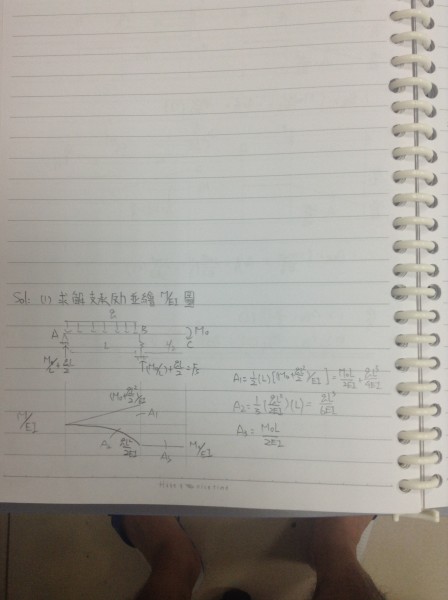 Sol: (1) 求解支承反力並繪 M/EI 圖
q
A B Mo
L L/2 C
Mo/L + qL/2
(Mo + qL²/2)/EI
A₁
M/EI
A₂ qL²/2EI
A₃ M/EI
A₁ = 1/2 (L) [(Mo + qL²/2)/EI] = MoL/2EI + qL³/4EI
A₂ = 1/3 (qL²/2EI)(L) = qL³/6EI
A₃ = MoL/2EI